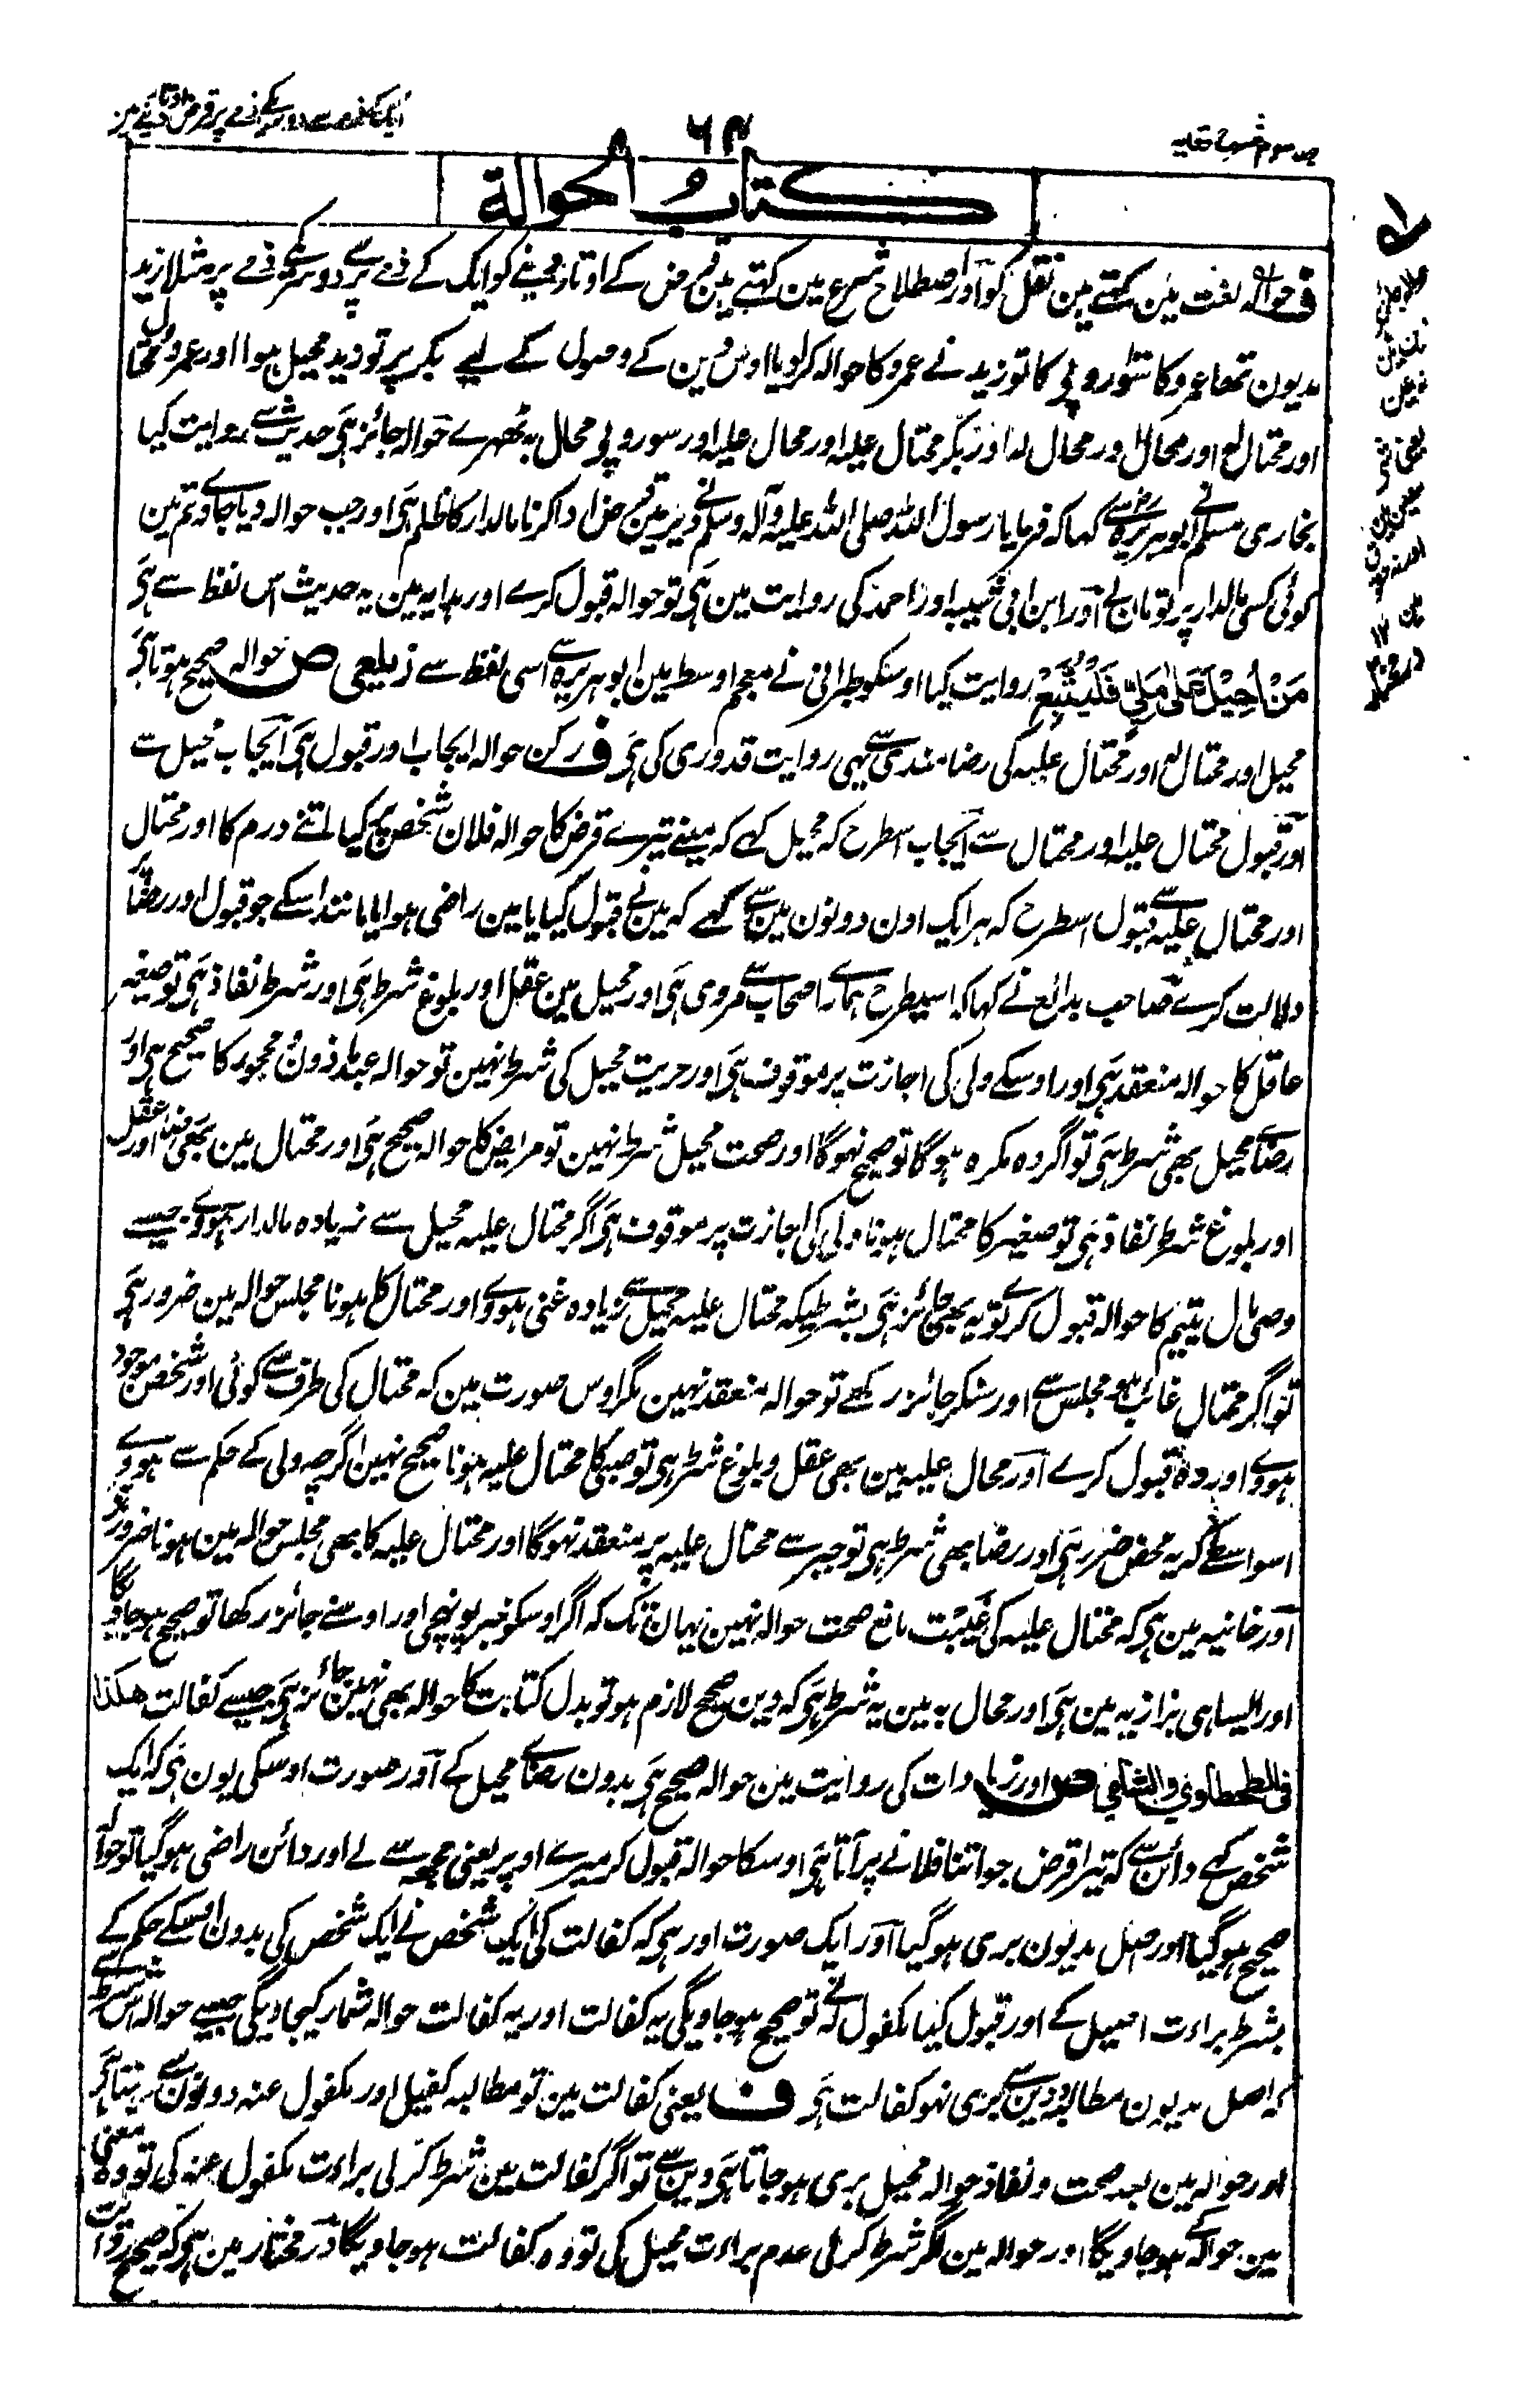 ۶۴
کتاب الحوالة
ف حوالہ لغت مین کہتے ہین نقل کو اور اصطلاح شرع مین کہتے ہین قرض کے اوتار دینے کو ایک کے ذمے پر سے دوسرے کے ذمے پر مثلا زید
مدیون تھا عمرو کا سو روپی کا تو زید نے عمرو کا حوالہ کر دیا اوس دین کے وصول کے لیے بکر پر تو زید محیل ہوا اور عمرو محتال
اور محتال لہ اور محال اور محال لہ اور بکر محتال علیہ اور محال علیہ اور سو روپی محال بہ ٹھہرے حوالہ جائز ہی حدیث سے روایت کیا
بخاری مسلم نے ابو ہریرہ سے کہا کہ فرمایا رسول اللہ صلی اللہ علیہ وآلہ وسلم نے دیر مین قرض ادا کرنا مالدار کا ظلم ہی اور جب حوالہ دیا جاوے تم مین
کوئی کسی مالدار پر تو مان لے اور ابن ابی شیبہ اور احمد کی روایت مین ہی تو حوالہ قبول کرے اور ہدایہ مین یہ حدیث اس لفظ سے ہی
مَنْ اُحِیْلَ عَلٰی مَلِیٍّ فَلْیَتَّبِعْ روایت کیا اوسکو طبرانی نے معجم اوسط مین ابو ہریرہ سے اسی لفظ سے زیلعی ص حوالہ صحیح ہوتا ہی
محیل اور محتال لہ اور محتال علیہ کی رضامندی سے یہی روایت قدوری کی ہی ف رکن حوالہ ایجاب اور قبول ہی ایجاب محیل سے
اور قبول محتال علیہ اور محتال سے ایجاب اسطرح کہ محیل کہے کہ مینے تیرے قرض کا حوالہ فلان شخص پر کیا اتنے درم کا اور محتال
اور محتال علیہ سے قبول اسطرح کہ ہر ایک اون دونون مین سے کہے کہ مین نے قبول کیا یا مین راضی ہوا یا مانند اسکے جو قبول اور رضا پر
دلالت کرے صاحب بدائع نے کہا کہ اسیطرح ہمارے اصحاب سے مروی ہی اور محیل مین عقل اور بلوغ شرط ہی اور شرط نفاذ ہی تو صغیر
عاقل کا حوالہ منعقد ہی اور اوسکے ولی کی اجازت پر موقوف ہی اور حریت محیل کی شرط نہین تو حوالہ عبد ماذون و محجور کا صحیح ہی اور
رضاے محیل بھی شرط ہی تو اگر وہ مکرہ ہوگا تو صحیح نہوگا اور صحت محیل شرط نہین تو مریض کا حوالہ صحیح ہی اور محتال مین بھی رضا اور عقل
اور بلوغ شرط نفاذ ہی تو صغیر کا محتال ہونا ولی کی اجازت پر موقوف ہی اگر محتال علیہ محیل سے زیادہ مالدار ہووے جیسے
وصی مال یتیم کا حوالہ قبول کرے تو یہ بھی جائز ہی بشرطیکہ محتال علیہ محیل سے زیادہ غنی ہووے اور محتال کا ہونا مجلس حوالہ مین ضرور ہی
تو اگر محتال غائب ہو مجلس سے اور سنکر جائز رکھے تو حوالہ منعقد نہین مگر اوس صورت مین کہ محتال کی طرف سے کوئی اور شخص موجود
ہووے اور وہ قبول کرے اور محال علیہ مین بھی عقل و بلوغ شرط ہی تو صبی کا محتال علیہ ہونا صحیح نہین اگرچہ ولی کے حکم سے ہووے
اسواسطے کہ یہ محض ضرر ہی اور رضا بھی شرط ہی تو جبر سے محتال علیہ پر منعقد نہوگا اور محتال علیہ کا بھی مجلس حوالہ مین ہونا ضرور ہی
اور خانیہ مین ہی کہ محتال علیہ کی غیبت مانع صحت حوالہ نہین یہان تک کہ اگر اوسکو خبر پونہچی اور اوسنے جائز رکھا تو صحیح ہو جاویگا
اور ایسا ہی بزازیہ مین ہی اور محال بہ مین یہ شرط ہی کہ دین صحیح لازم ہو تو بدل کتابت کا حوالہ بھی نہین جائز ہی جیسے کفالت ھکذا
فی الطحطاوی والشامی ص اور زیادات کی روایت مین حوالہ صحیح ہی بدون رضاے محیل کے اور صورت اوسکی یون ہی کہ ایک
شخص کہے دائن سے کہ تیرا قرض جو اتنا فلانے پر آتا ہی اوسکا حوالہ قبول کر میرے اوپر یعنی مجھسے لے اور دائن راضی ہوگیا تو حوالہ
صحیح ہوگیا اور اصل مدیون بری ہوگیا اور ایک صورت اور ہی کہ کفالت کی ایک شخص نے ایک شخص کی بدون اوسکے حکم کے
بشرط براءت اصیل کے اور قبول کیا مکفول لہ نے تو صحیح ہو جاویگی یہ کفالت اور یہ کفالت حوالہ شمار کیجاویگی جیسے حوالہ اس شرط سے
کہ اصل مدیون مطالبہ دین سے بری نہو کفالت ہی ف یعنی کفالت مین تو مطالبہ کفیل اور مکفول عنہ دونون سے رہتا ہی
اور حوالہ مین بعد صحت و نفاذ حوالہ محیل بری ہو جاتا ہی دین سے تو اگر کفالت مین شرط کر لی براءت مکفول عنہ کی تو وہ معنی
مین حوالہ کے ہو جاویگا اور حوالہ مین اگر شرط کر لی عدم براءت محیل کی تو وہ کفالت ہو جاویگا در مختار مین ہی کہ صحیح روایت